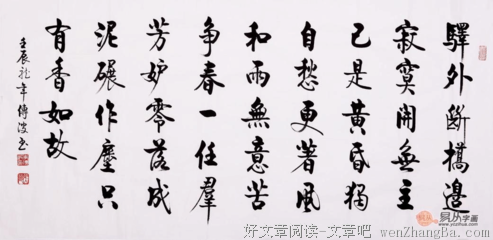 驛外斷橋邊
寂寞開無主
已是黃昏獨
自愁更著風
和雨無意苦
争春一任羣
芳妒零落成
泥碾作塵只
有香如故
壬辰龍年
好文章阅读-文章吧 wenZhangBa.com